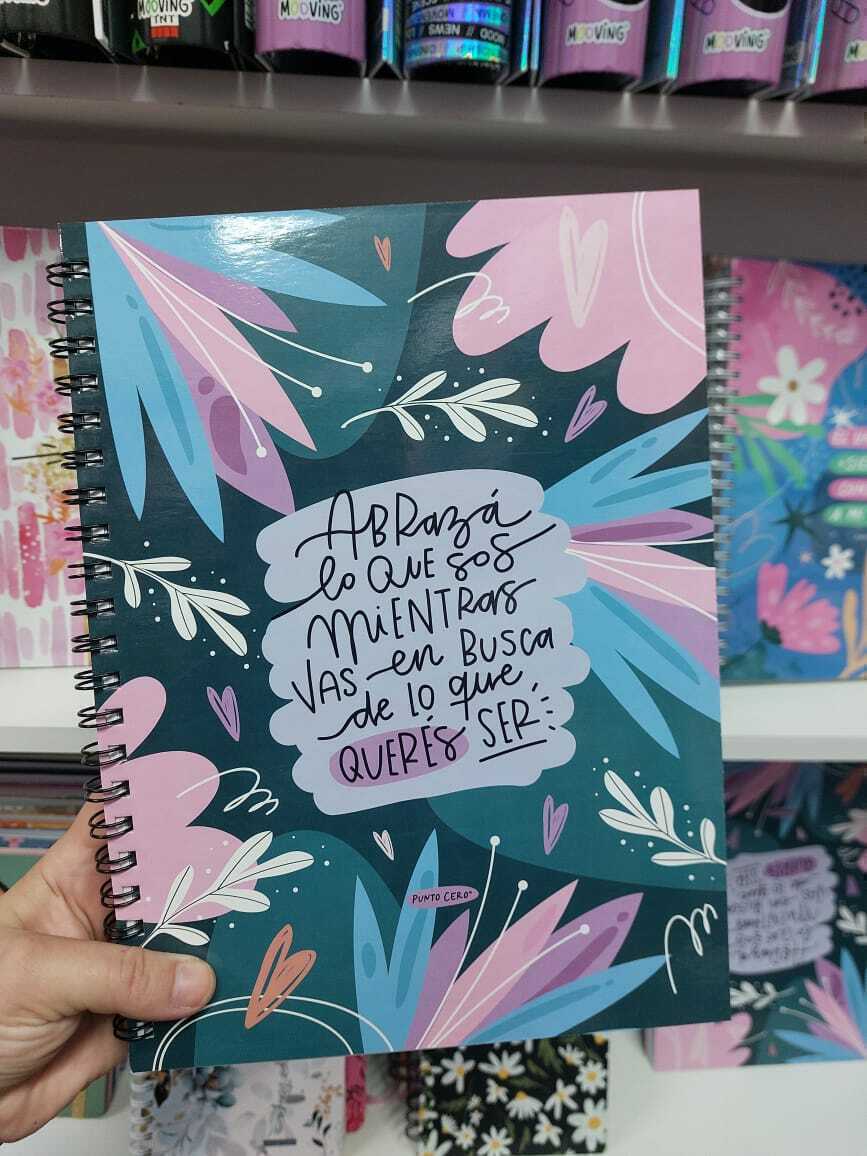 MOOVING
TNT
MOOVING
MOOVING
MOOVING
Abrazá
lo que sos
mientras
vas en busca
de lo que
querés ser
PUNTO CERO